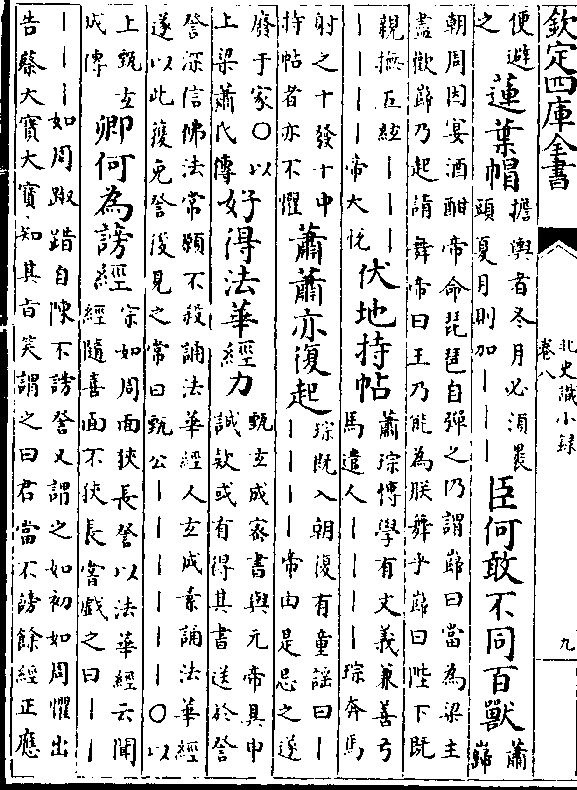 欽定四庫全書
北史識小録
卷八
九
便避
之
蓮葉帽
擔輿者冬月必須裹
頭夏月則加｜｜｜
臣何敢不同百獸
蕭
巋
朝周因宴酒酣帝命琵琶自彈之仍謂巋曰當為梁主
盡歡巋乃起請舞帝曰王乃能為朕舞乎巋曰陛下既
親撫五絃｜｜｜
｜｜｜｜帝大悅
伏地持帖
蕭琮博學有文義兼善弓
馬遣人｜｜｜｜琮奔馬
射之十發十中
持帖者亦不懼
蕭蕭亦復起
琮既入朝復有童謡曰｜
｜｜｜｜帝由是忌之遂
廢于家○以
上梁蕭氏傳
好得法華經力
甄玄成密書與元帝具申
誠欵或有得其書送於詧
詧深信佛法常願不殺誦法華經人玄成素誦法華經
遂以此獲免詧後見之常曰甄公｜｜｜｜｜｜○以
上甄玄
成傳
卿何為謗經
宗如周面狹長詧以法華經云聞
經隨喜面不狹長嘗戲之曰｜｜
｜｜｜如周踧踖自陳不謗詧又謂之如初如周懼出
告蔡大寶大寶知其旨笑謂之曰君當不謗餘經正應